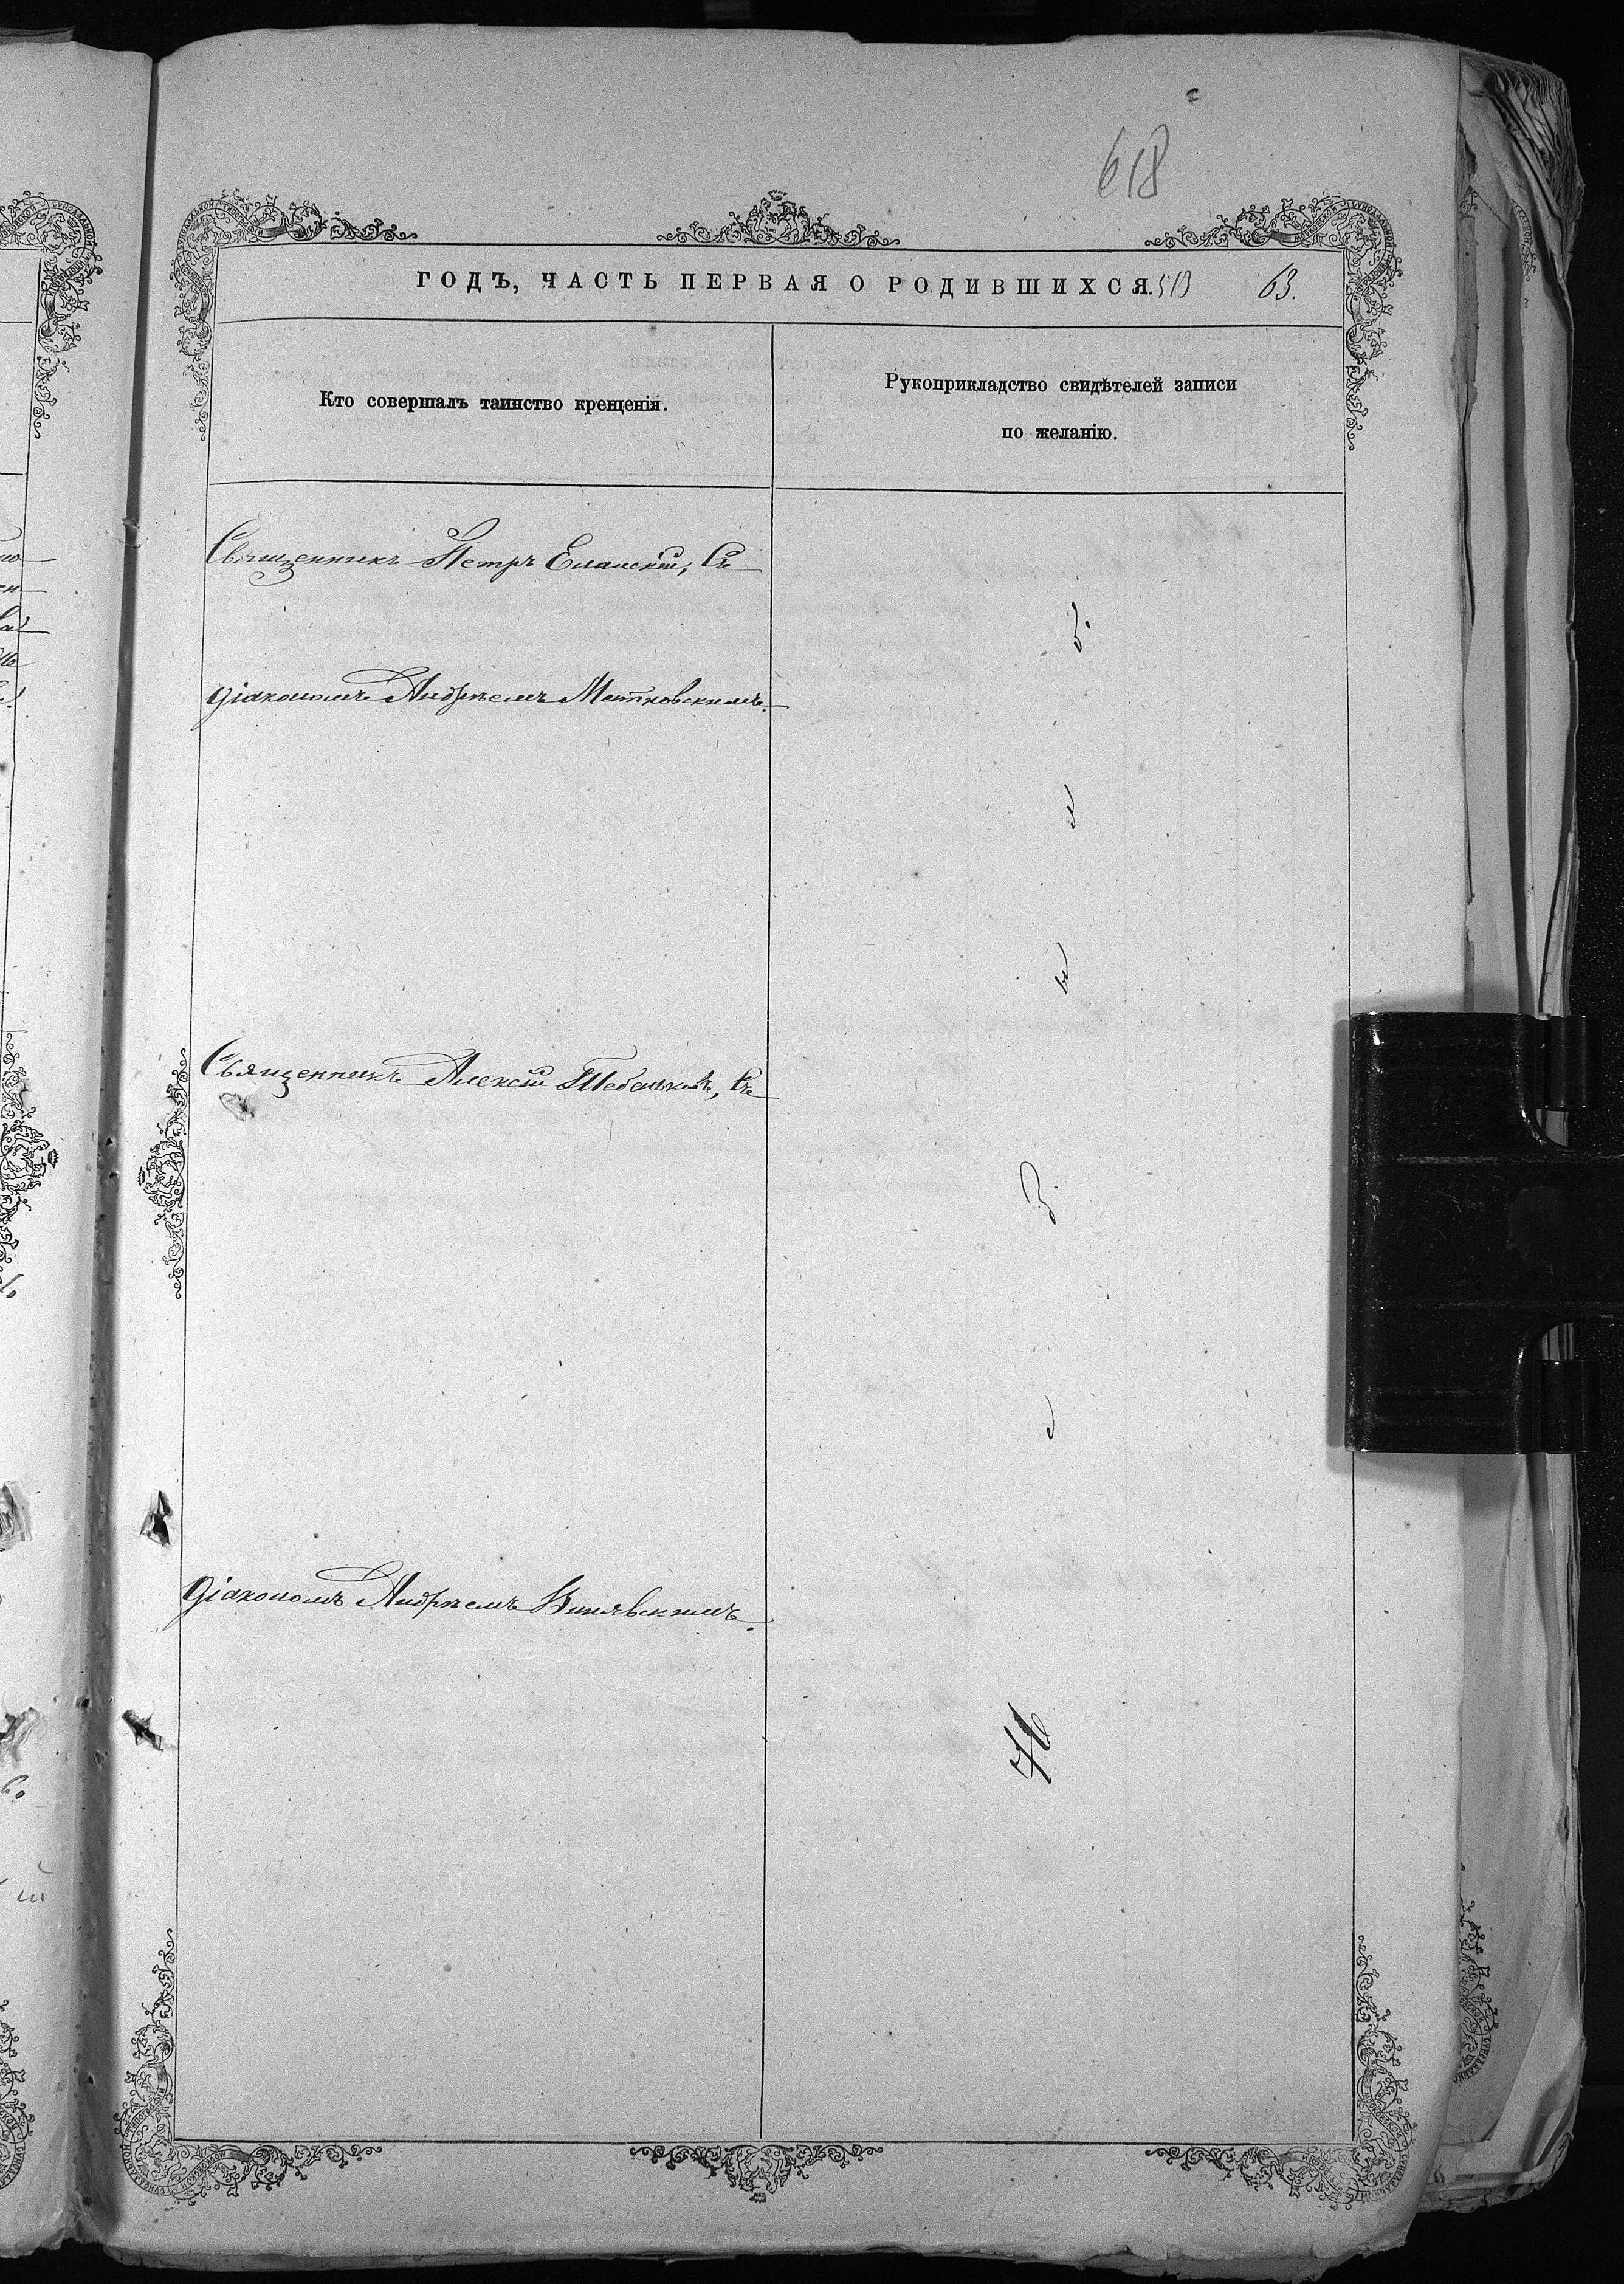 618
ГОДЪ, ЧАСТЬ ПЕРВАЯ О РОДИВШИХСЯ. 513 63.
Кто совершалъ таинство крещенія.
Рукоприкладство свидѣтелей записи
по желанію.
Священникъ Петръ Еланскій, Съ
діакономъ Андреемъ Метковскимъ.
Священникъ Алексій Тебеньковъ, Съ
діакономъ Андреемъ